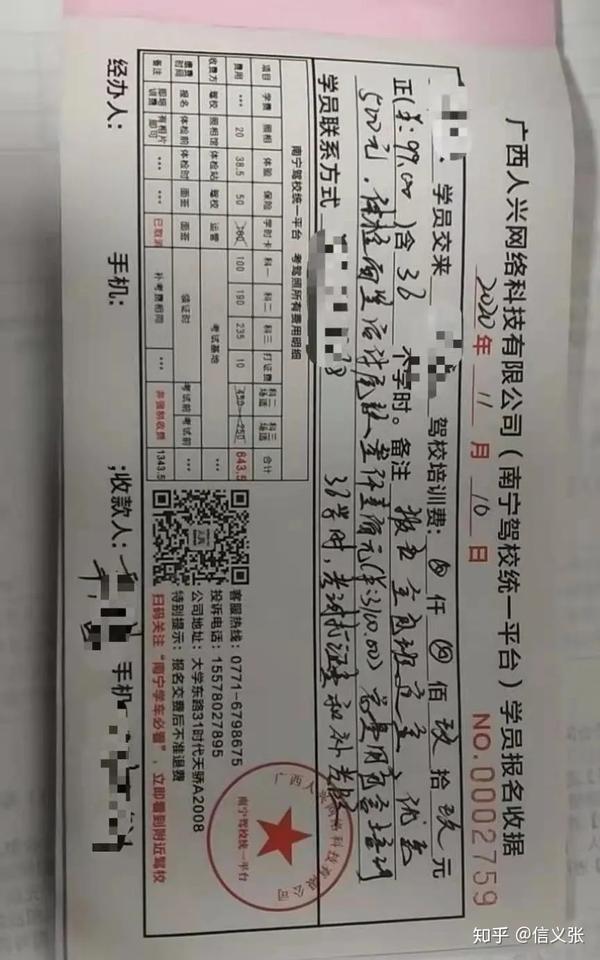 广西人兴网络科技有限公司（南宁驾校统一平台）学员报名收据
2020年 11月 16日 NO.0002759
学员交来 驾校培训费： 仟 佰玖拾玖元
正(¥:99.00)含 36 个学时。备注 优惠
500元，体检面签后付尾款叁仟壹佰元(¥:3100.00) 总费用包含培训
学员联系方式 38 36学时，考试打证费和补考费
南宁驾校统一平台 考驾照所有费用明细
项目 学费 照相 体验 保险 学时卡 科一 科二 科三 打证费 科二场训 科三场训 合计
费用 … 20 38.5 50 180 100 190 235 10 450 250 643.5
收费方 驾校 照相馆 体检站 驾校 运管 考试基地 …
缴费时间 报名 体检前 体检时 面签 面签 领证时 考试前 考试前 …
备注 … … 已取消 补考费相同 … 非强制收费 1343.5
客服热线：0771-6798675
投诉电话：15578027895
公司地址：大学东路31时代天骄A2008
特别提示：报名交费后不准退费
扫码关注“南宁学车必看”，立即看到附近驾校
经办人： 手机： ;收款人： 手机
南宁驾校统一平台
知乎 @信义张